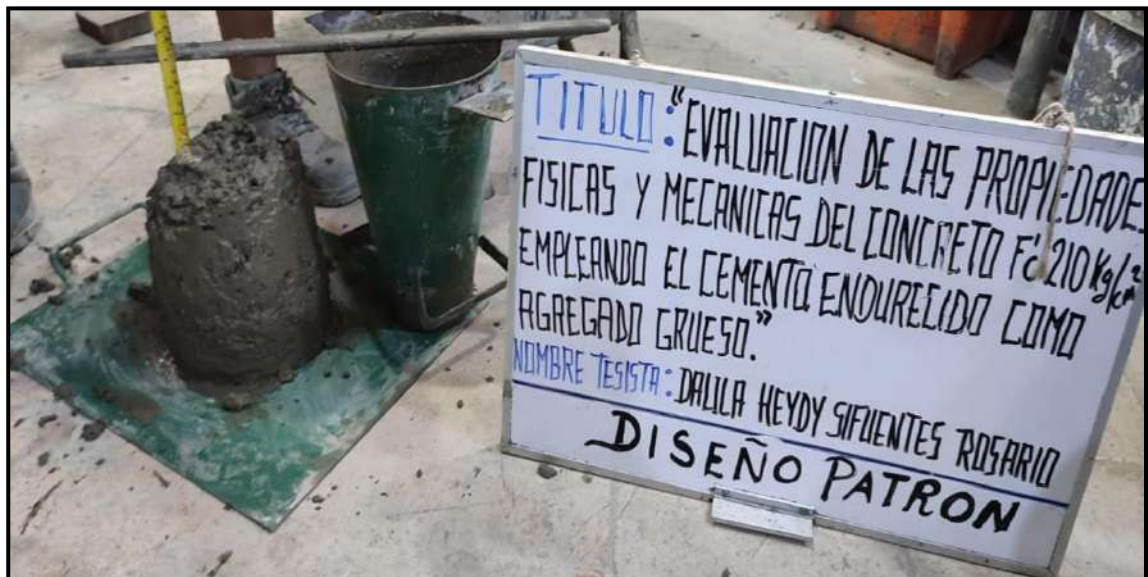 TITULO: "EVALUACION DE LAS PROPIEDADES
FISICAS Y MECANICAS DEL CONCRETO F'c 210 Kg/cm²
EMPLEANDO EL CEMENTO ENDURECIDO COMO
AGREGADO GRUESO".
NOMBRE TESISTA: DALILA HEYDY SIFUENTES ROSARIO
DISEÑO PATRON